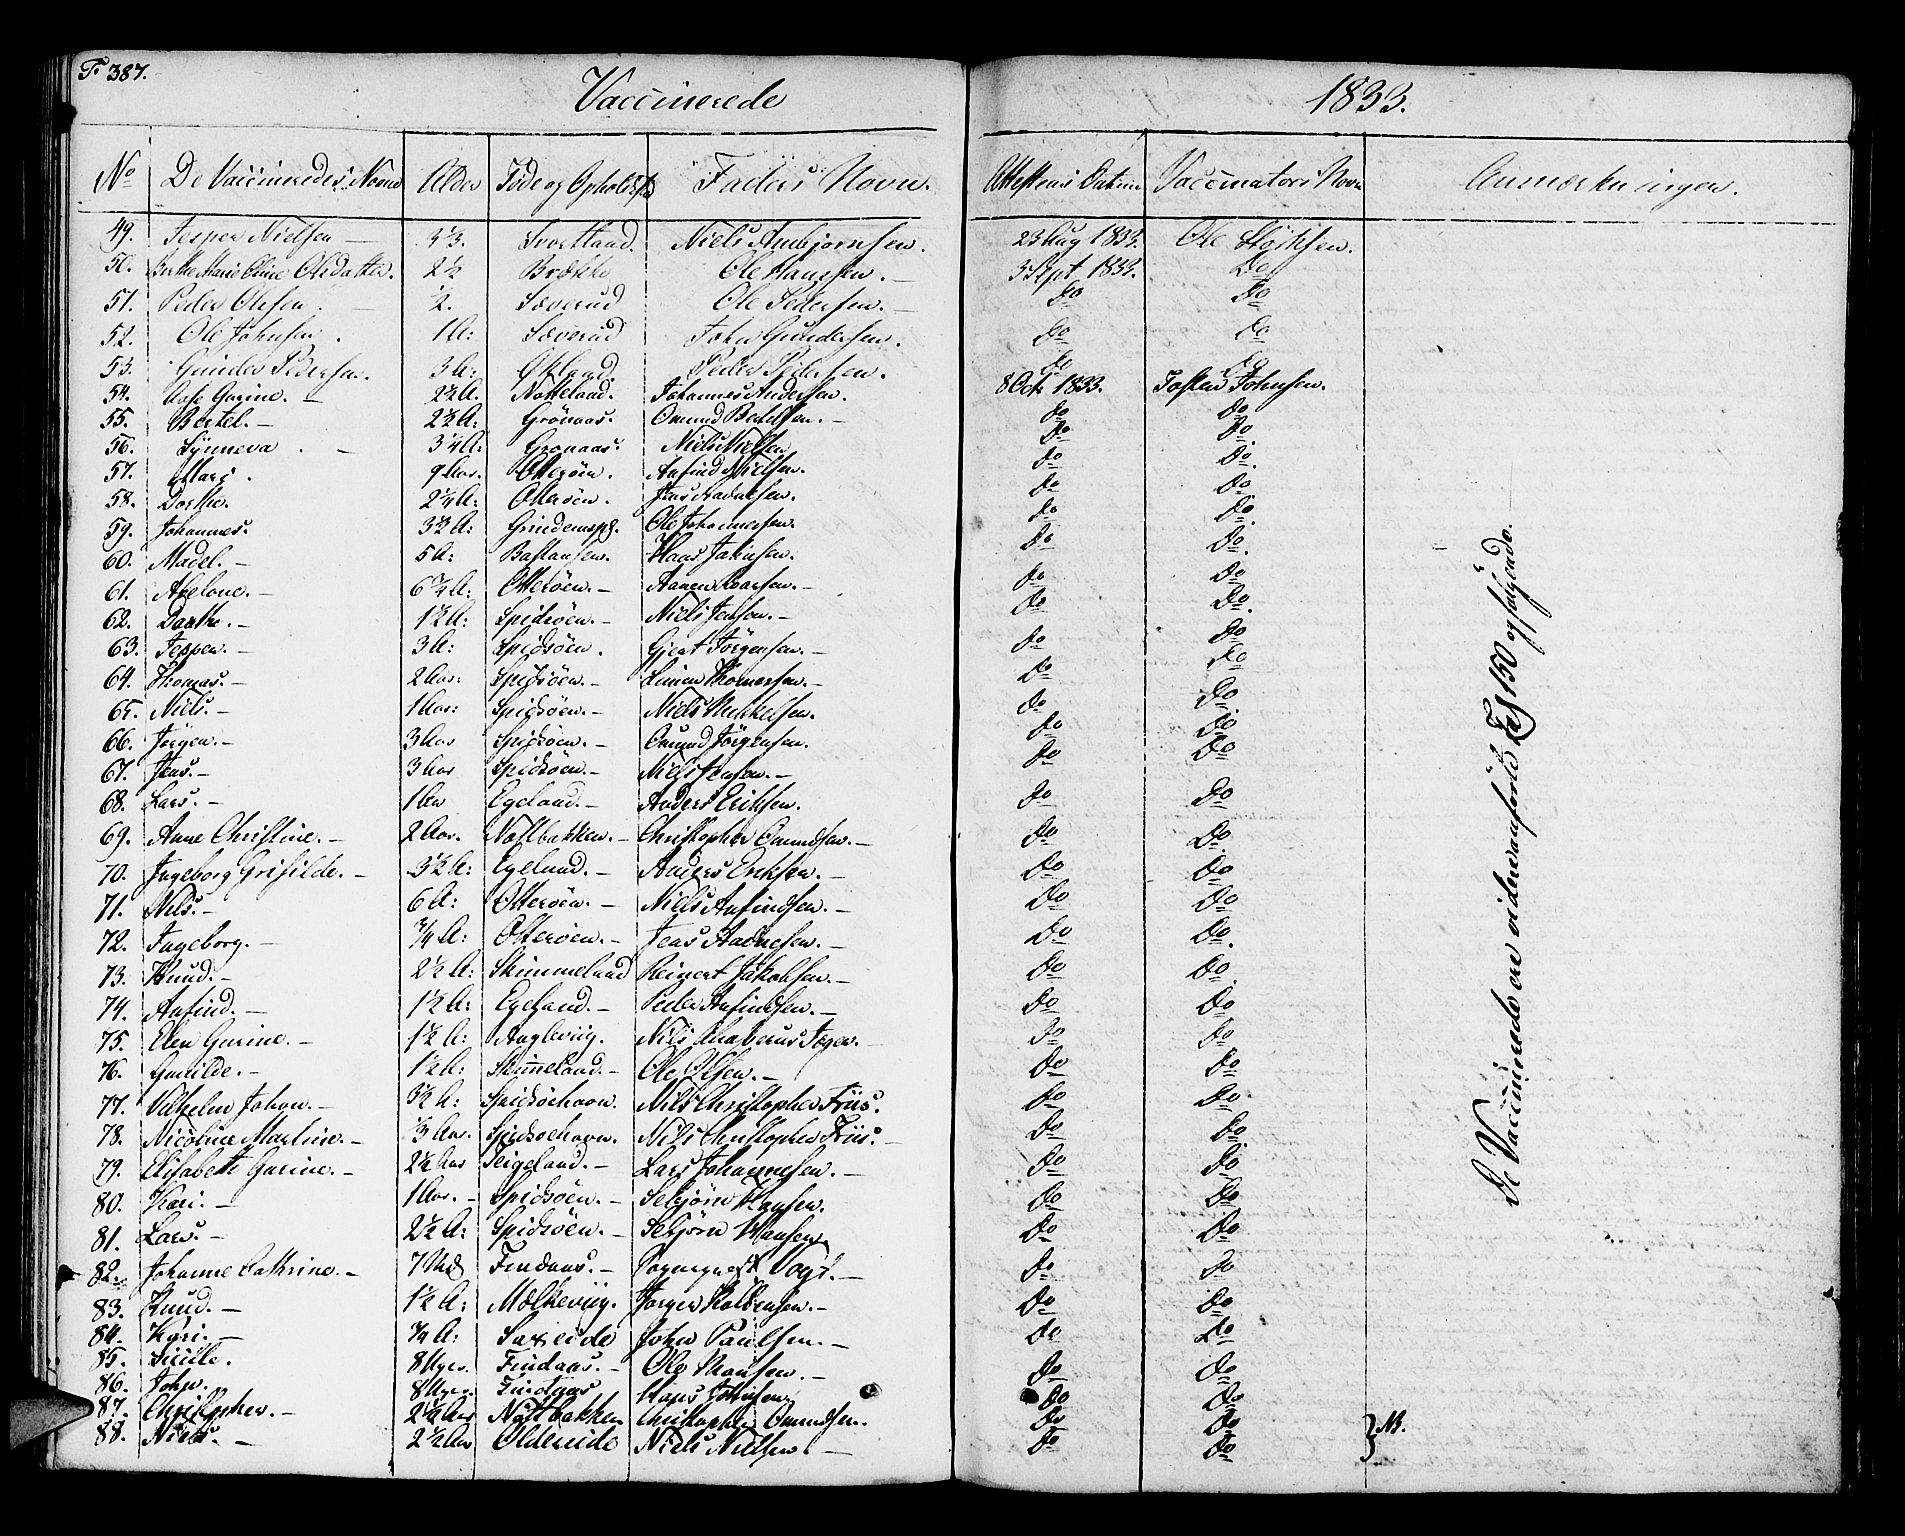 F. 387.
Vaccinerede 1833.
No De Vaccineredes Navne Alder Føde og Opholdst. Faders Navn. Attestens Datum Vaccinators Navn Anmærkningen.
49. Jesper Nielsen — 3/3. Svortland. Niels Anbjørnsen. 23 Aug 1833. Ole Størksen.
50. Berthe Marie Oline Olsdatter. 2½ Brække Ole Hanssen. — 3 Sept. 1833. Do
51. Peder Olesen. ½. Sæverud Ole Pedersen. — Do Do
52. Ole Johnsen. 1 A: Sæverud John Gundersen. Do Do
53. Gunder Pedersen. 3 A: Peder Pedersen. Do Do
54. Gurine. — 2½ A. Notteland. Johannes Andersen. 8 Oct. 1833. Tosten Johnsen.
55. Bertel. — 2½ A: Grönaas. Omund Bertelsen. — Do Do
56. Synneva. — 3¼ A: Gronaas. Niels Nielsen Do Do
57. Mari. 9 Aar. Otterøen. Anfind Nielsen. Do Do.
58. Dorthe. 2¼ A: Otterøen. Jens Aadnesen. Do Do
59. Johannes. 3½ A: Grindemspl. Ole Johannessen. Do Do
60. Madel. — 5 A: Bastansen. Hans Johnsen. Do Do.
61. Abelone. — 6¾ A: Otterøen. — Do Do
62. Dorthe. — 1½ A: Spidsøen. — Niels Jensen. — Do Do
63. Jesper. — 3 A: Spidsøen. Gjert Jörgensen. — Do Do
64. Thomas. — 2 Aar: Spidsøen. — Simen Thomassen. — Do Do
65. Niels. — 1 Aar: Spidsøen. — Niels Mikkelsen. Do Do
66. Jørgen. — 3 Aar Spidsøen. — Omund Jörgensen. Do Do
67. Jens. — 3 Aar Spidsøen. — Niels Jensen. — Do Do
68. Lars. — 1 Aar Egeland. — Anders Eriksen. Do Do
69. Anne Christine. — 2 Aar. Nøttbakken. — Christopher Omundsen. — Do Do
70. Ingeborg Grisilde. — 3½ A: Egeland. — Anders Eriksen. — Do Do
71. Nils. — 6 A: Otterøen. — Niels Anfindsen. — Do Do
72. Ingeborg. — ¾ A: Otterøen. — Jens Aadnesen. — Do Do
73. Knud. — 2½ A: Skimmeland Reinert Jakobsen. — Do Do
74. Anfind. — 1½ A: Egeland. — Peder Anfindsen. — Do Do
75. Elen Gurine. — 1½ A: Anglevig. Nils Do Do
76. Gunilde. — 1½ A: Skimeland. — Ole Olsen. — Do Do
77. Vilhelm Johan. — 3½ A: Spidsøehavn. Nils Christopher Friis. Do Do
78. Nicoline Martine. — ⅓ Aar. Spidsøehavn. Nils Christopher Friis. — Do Do
79. Elisabeth Gurine. — 2½ Aar Seigeland. — Lars Johannesen. — Do Do
80. Kari. — 1 Aar. — Spidsøen. — Sebjørn Hansen. Do Do
81. Lars. — 2½ A: Spidsøen. — Sebjørn Hansen. Do Do
82. Johanne Cathrine. — 7 Findaas. — Sognepræst Vogt. — Do Do
83. Knud. — 1½ A: Mælkevig. Do Do
84. Kari. — ¾ A: Saxeide John Paulsen. — Do Do
85. Sicille. 8 Uger. Findaas. — Ole Monsen. — Do Do
86. John. 8 Uger. Findaas Hans Johnsen. Do Do
87. Christopher. — 2¼ Aar Nøttbakken Christopher Omundsen. Do Do
88. Niels. — 2½ Aar Oldereide Niels Nielsen. — Do Do } NB.
De Vaccinerede ere videreanførte Pag 150 og følgende.